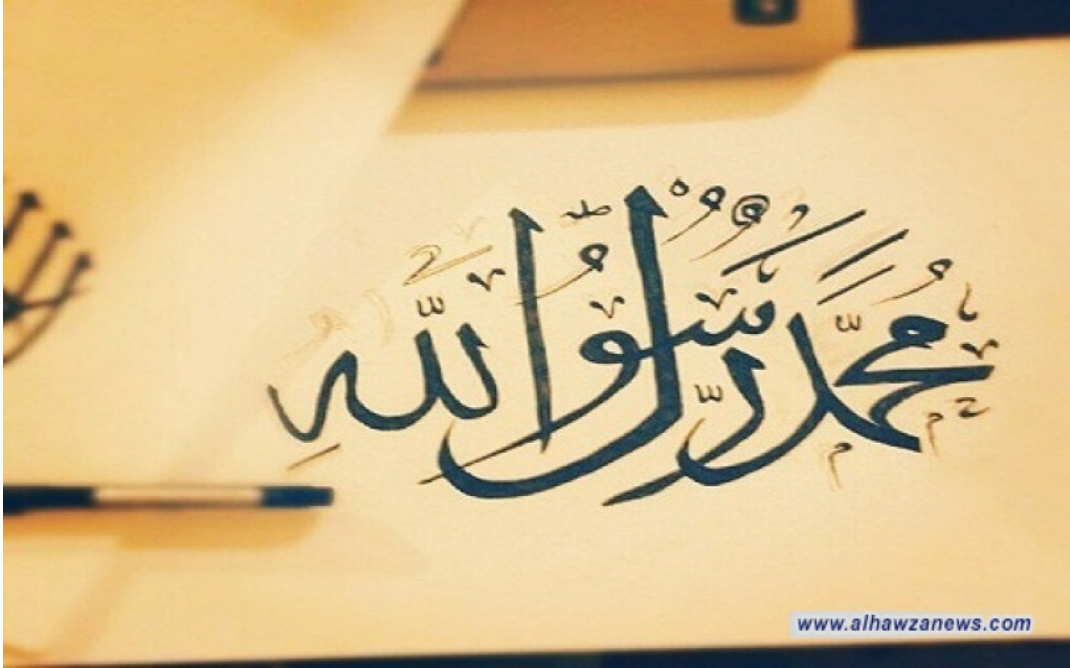 مُحَمَّدٌ رَّسُوْلُ اللّٰهِ
www.alhawzanews.com